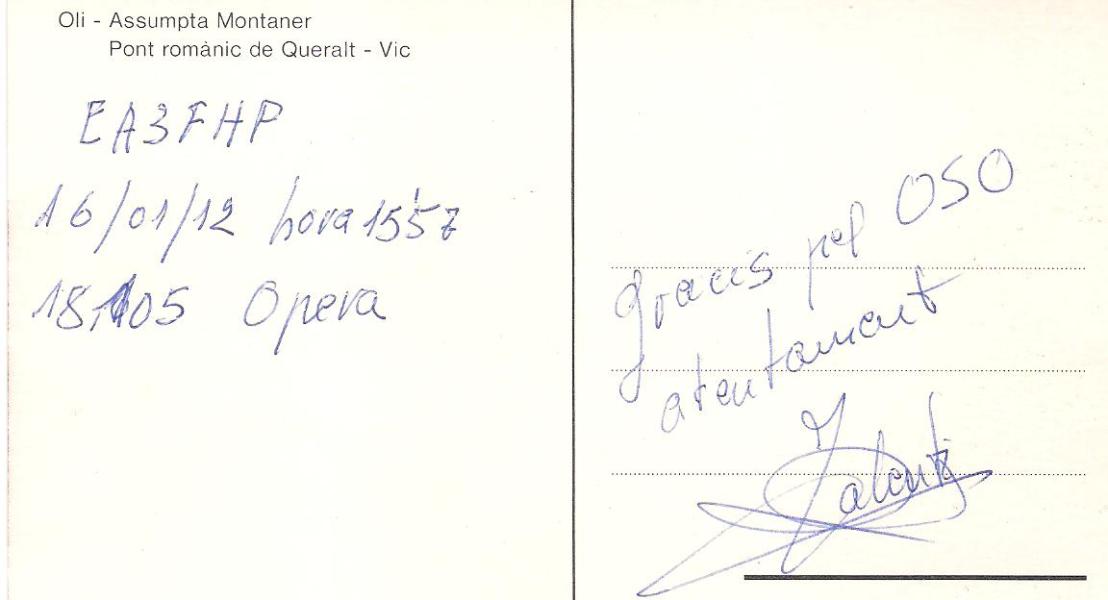 Oli - Assumpta Montaner
Pont romànic de Queralt - Vic
EA3FHP
16/01/12 hora 1557
18,105 Opera
Gracis pel QSO
atentament
Valentí